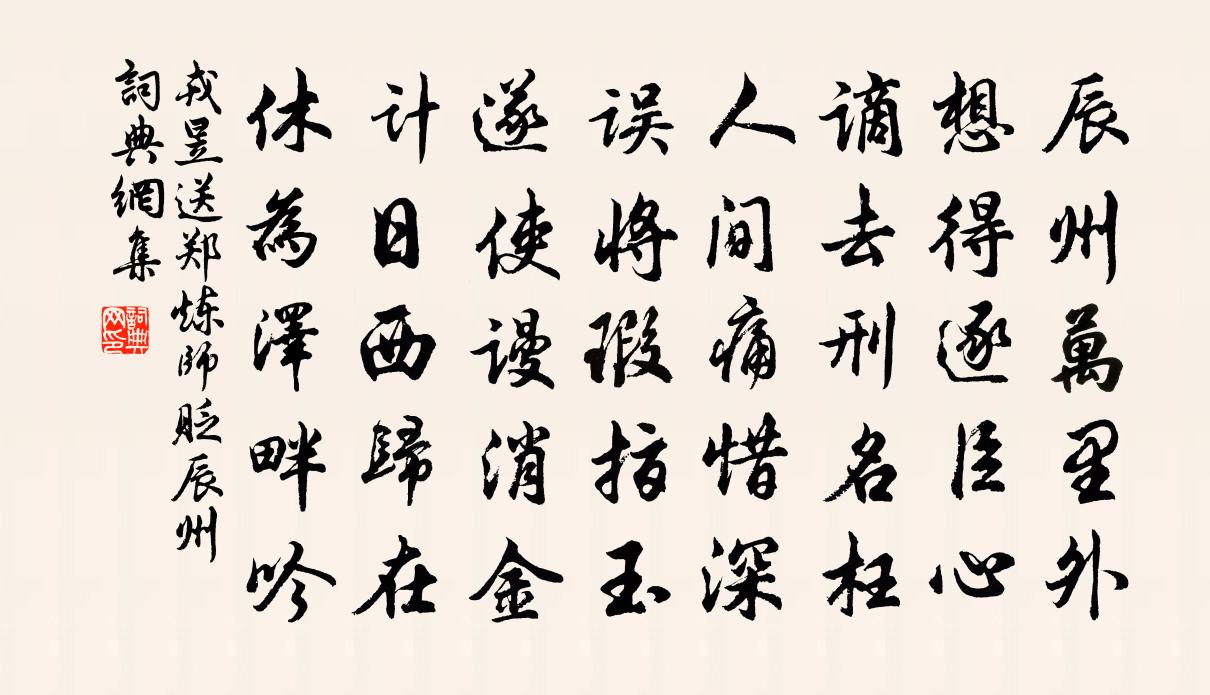 辰州萬里外
想得逐臣心
謫去刑名枉
人间痛惜深
误將瑕指玉
遂使谩消金
计日西歸在
休為澤畔吟
戎昱送郑炼师贬辰州
詞典網集
詞典网印